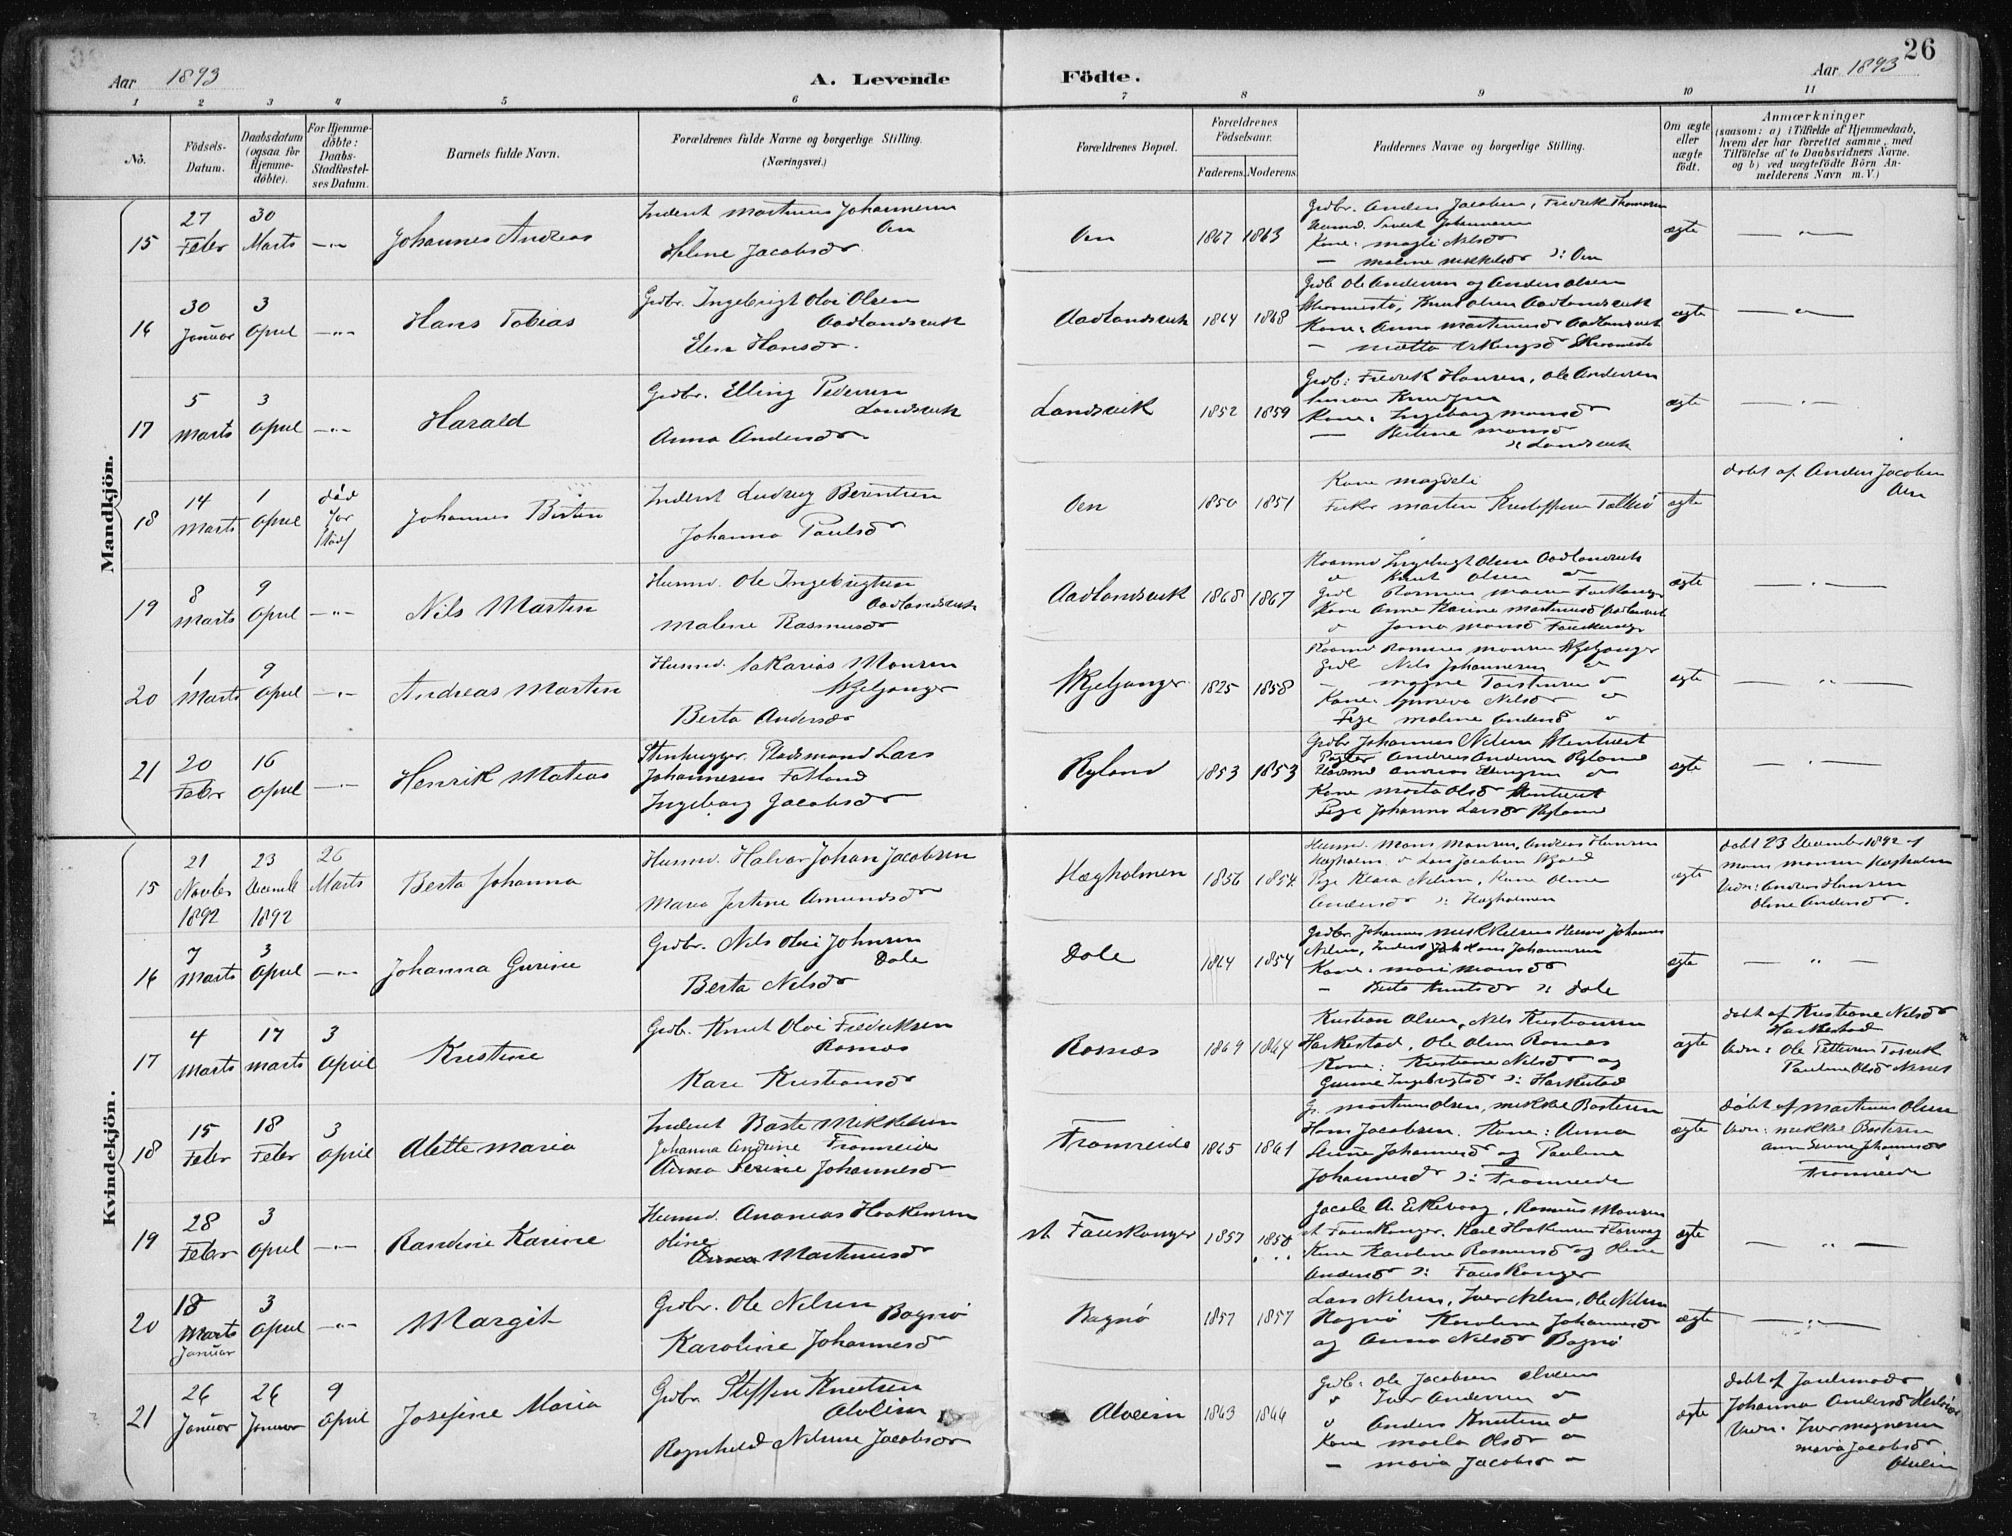 26
Aar 1893
A. Levende
Födte.
Aar 1893
1 2 3 4 5 6 7 8 9 10 11
No.
Födsels-Datum.
Daabsdatum (ogsaa for Hjemme-döbte).
For Hjemme-döbte: Daabs-Stadfæstel-ses Datum.
Barnets fulde Navn.
Forældrenes fulde Navne og borgerlige Stilling.
(Næringsvei.)
Forældrenes Bopæl.
Forældrenes Födselsaar.
Faderens.
Moderens.
Faddernes Navne og borgerlige Stilling.
Om ægte eller uægte født.
Anmærkninger
(saasom: a) i Tilfælde af Hjemmedaab,
hvem der har forrettet samme, med
Tilföielse af to Daabsvidners Navne.
og b) ved uægtefödte Börn An-
melderens Navn m. V.)
Mandkjön.
15 27 Febr 30 Marts Johannes Andreas
Inderst Martinus Johannesen
Oen
Helene Jacobsdr
Oen 1867 1863
Grdbr. Anders Jacobsen, Fredrik Thomassen
Kone: Magli Nilsdr
— Malene Mikkelsdr ɔ: Oen
ægte
16 30 Januar 3 April Hans Tobias
Grdbr. Ingebrigt Olai Olsen
Aadlandsvik
Elen Hansdr.
Aadlandsvik 1864 1868
Grdb Ole Andersen og Anders Olsen
Knut Olsen Aadlandsvik
Kone: Anna Martinusdr Aadlandsvik
ægte
17 5 Marts 3 April Harald
Grdbr. Elling Pedersen
Landsvik
Anna Andersdr
Landsvik 1852 1859
Grdb: Fredrik Hansen, Ole Andersen
Simon Knudsen
Kone: Ingeborg Monsdr
— Bertine Monsdr
ɔ: Landsvik
ægte
18 14 Marts 1 April død før Stadf Johannes Bertin
Inderst Ludvig Berentsen
Johanna Paulsdr
Oen 1850 1851
Kone Magdeli
Fisker Marten Kristoffersen
ægte
døbt af Anders Jacobsen
Oen
19 8 Marts 9 April Nils Martin
Husmd. Ole Ingebrigtsen
Aadlandsvik
Malene Rasmusdr
Aadlandsvik 1868 1867
Ingebrigt Olsen Aadlandsvik
Knut Olsen
Kone Anne Karine Martinusd Aadlandsvik
ægte
20 1 Marts 9 April Andreas Martin
Husmd. Sakarias Monsen
Skjeljanger
Berta Andersdr
Skjeljanger 1825 1858
Rasmus Monsen Skjeljanger
Grdb Nils Johannesen
Magne Torstensen
Kone: Synneva Nilsdr
Pige Malene Andersd
ægte
21 20 Febr 16 April Henrik Matias
Stenhugger Pladsmand Lars
Johannesen Fatland
Ingeborg Jacobsdr
Ryland 1853 1853
Grdbr Johannes Nilsen
Andreas Andersen Ryland
Kone Marta Olsdr
Pige Johanna Larsdr Ryland
ægte
Kvindekjön.
15 21 Novbr 1892 23 Decembr 1892 26 Marts Berta Johanna
Husmd. Halvor Johan Jacobsen
Maria Jertine Amundsdr
Hægholmen 1856 1854
Husmd. Mons Monsen, Andreas Hansen
Hægholm. Lars Jacobsen
Pige Klara Nilsen, Kone Oline
Andersdr ɔ: Hægholmen
ægte
døbt 23 December 1892 af
Mons Monsen Hægholmen
Vidn: Andreas Hansen
Oline Andersdr.
16 7 Marts 3 April Johanna Gurine
Grdbr. Nils Olai Johnsen
Dale
Berta Nilsdr
Dale 1864 1854
Grdbr. Johannes Mikkelsen Husmd Johannes
Nilsen, Hans Johannesen
Kone: Mari Monsdr
— Berta Knutsdr ɔ: Dale
ægte
17 4 Marts 17 Marts 3 April Kristine
Grdb. Knut Olai Fredriksen
Rosnæs
Kari Kristiansdr
Rosnæs 1869 1864
Kristian Olsen, Nils Kristiansen
Harkestad, Ole Olsen Rosnæs
Kone: Kristiane Nilsdr og
Gurine Ingebrigtsd ɔ: Harkestad
ægte
døbt af Kristiane Nilsdr
Harkestad
Vidn: Ole Pettersen
Pauline Olsdr
18 15 Febr 18 Febr 3 April Alette Maria
Inderst Baste Mikkelsen
Johanna Andrine Fromreide
Anna Serine Johannesdr
Fromreide 1865 1861
Gr. Martinus Olsen, Mikkel Bastesen
Hans Jacobsen. Kone: Anna
Serine Johannesdr og Pauline
Johannesdr ɔ: Fromreide
ægte
Døbt af Martinus Olsen
Vidn: Mikkel Bastesen
Anna Serine Johannesdr
Fromreide
19 28 Febr 3 April Randine Karine
Husmd. Ananias Haakensen
Oline
Anna Martinusdr
st Fauskanger 1857 1858
Jacob A. Eikevaag, Rasmus Monsen
st Fauskanger. Karl Haakensen
Kone Karoline Rasmusd og Oline
Andersdr ɔ: Fauskanger
ægte
20 18 Marts Januar 3 April Margit
Grdbr. Ole Nilsen Bagnø
Karoline Johannesdr
Bagnø 1857 1857
Lars Nilsen, Iver Nilsen, Ole Nilsen
Bagnø Karoline Johannesdr
og Anna Nilsdr Bagnø
ægte
21 26 Januar 26 Januar 9 April Josefine Maria
Grdbr Steffen Knutsen
Alveim
Ragnhild Nilsine Jacobsdr
Alveim 1863 1866
Grdb: Ole Jacobsen Alveim
Iver Andersen
Anders Knutsen
Kone Marta Olsdr
— Maria Jacobsdr
ægte
døbt af Jordemoder
Johanna Andersdr
Vidn: Iver Magnesen
Maria Jacobsdr
Alveim